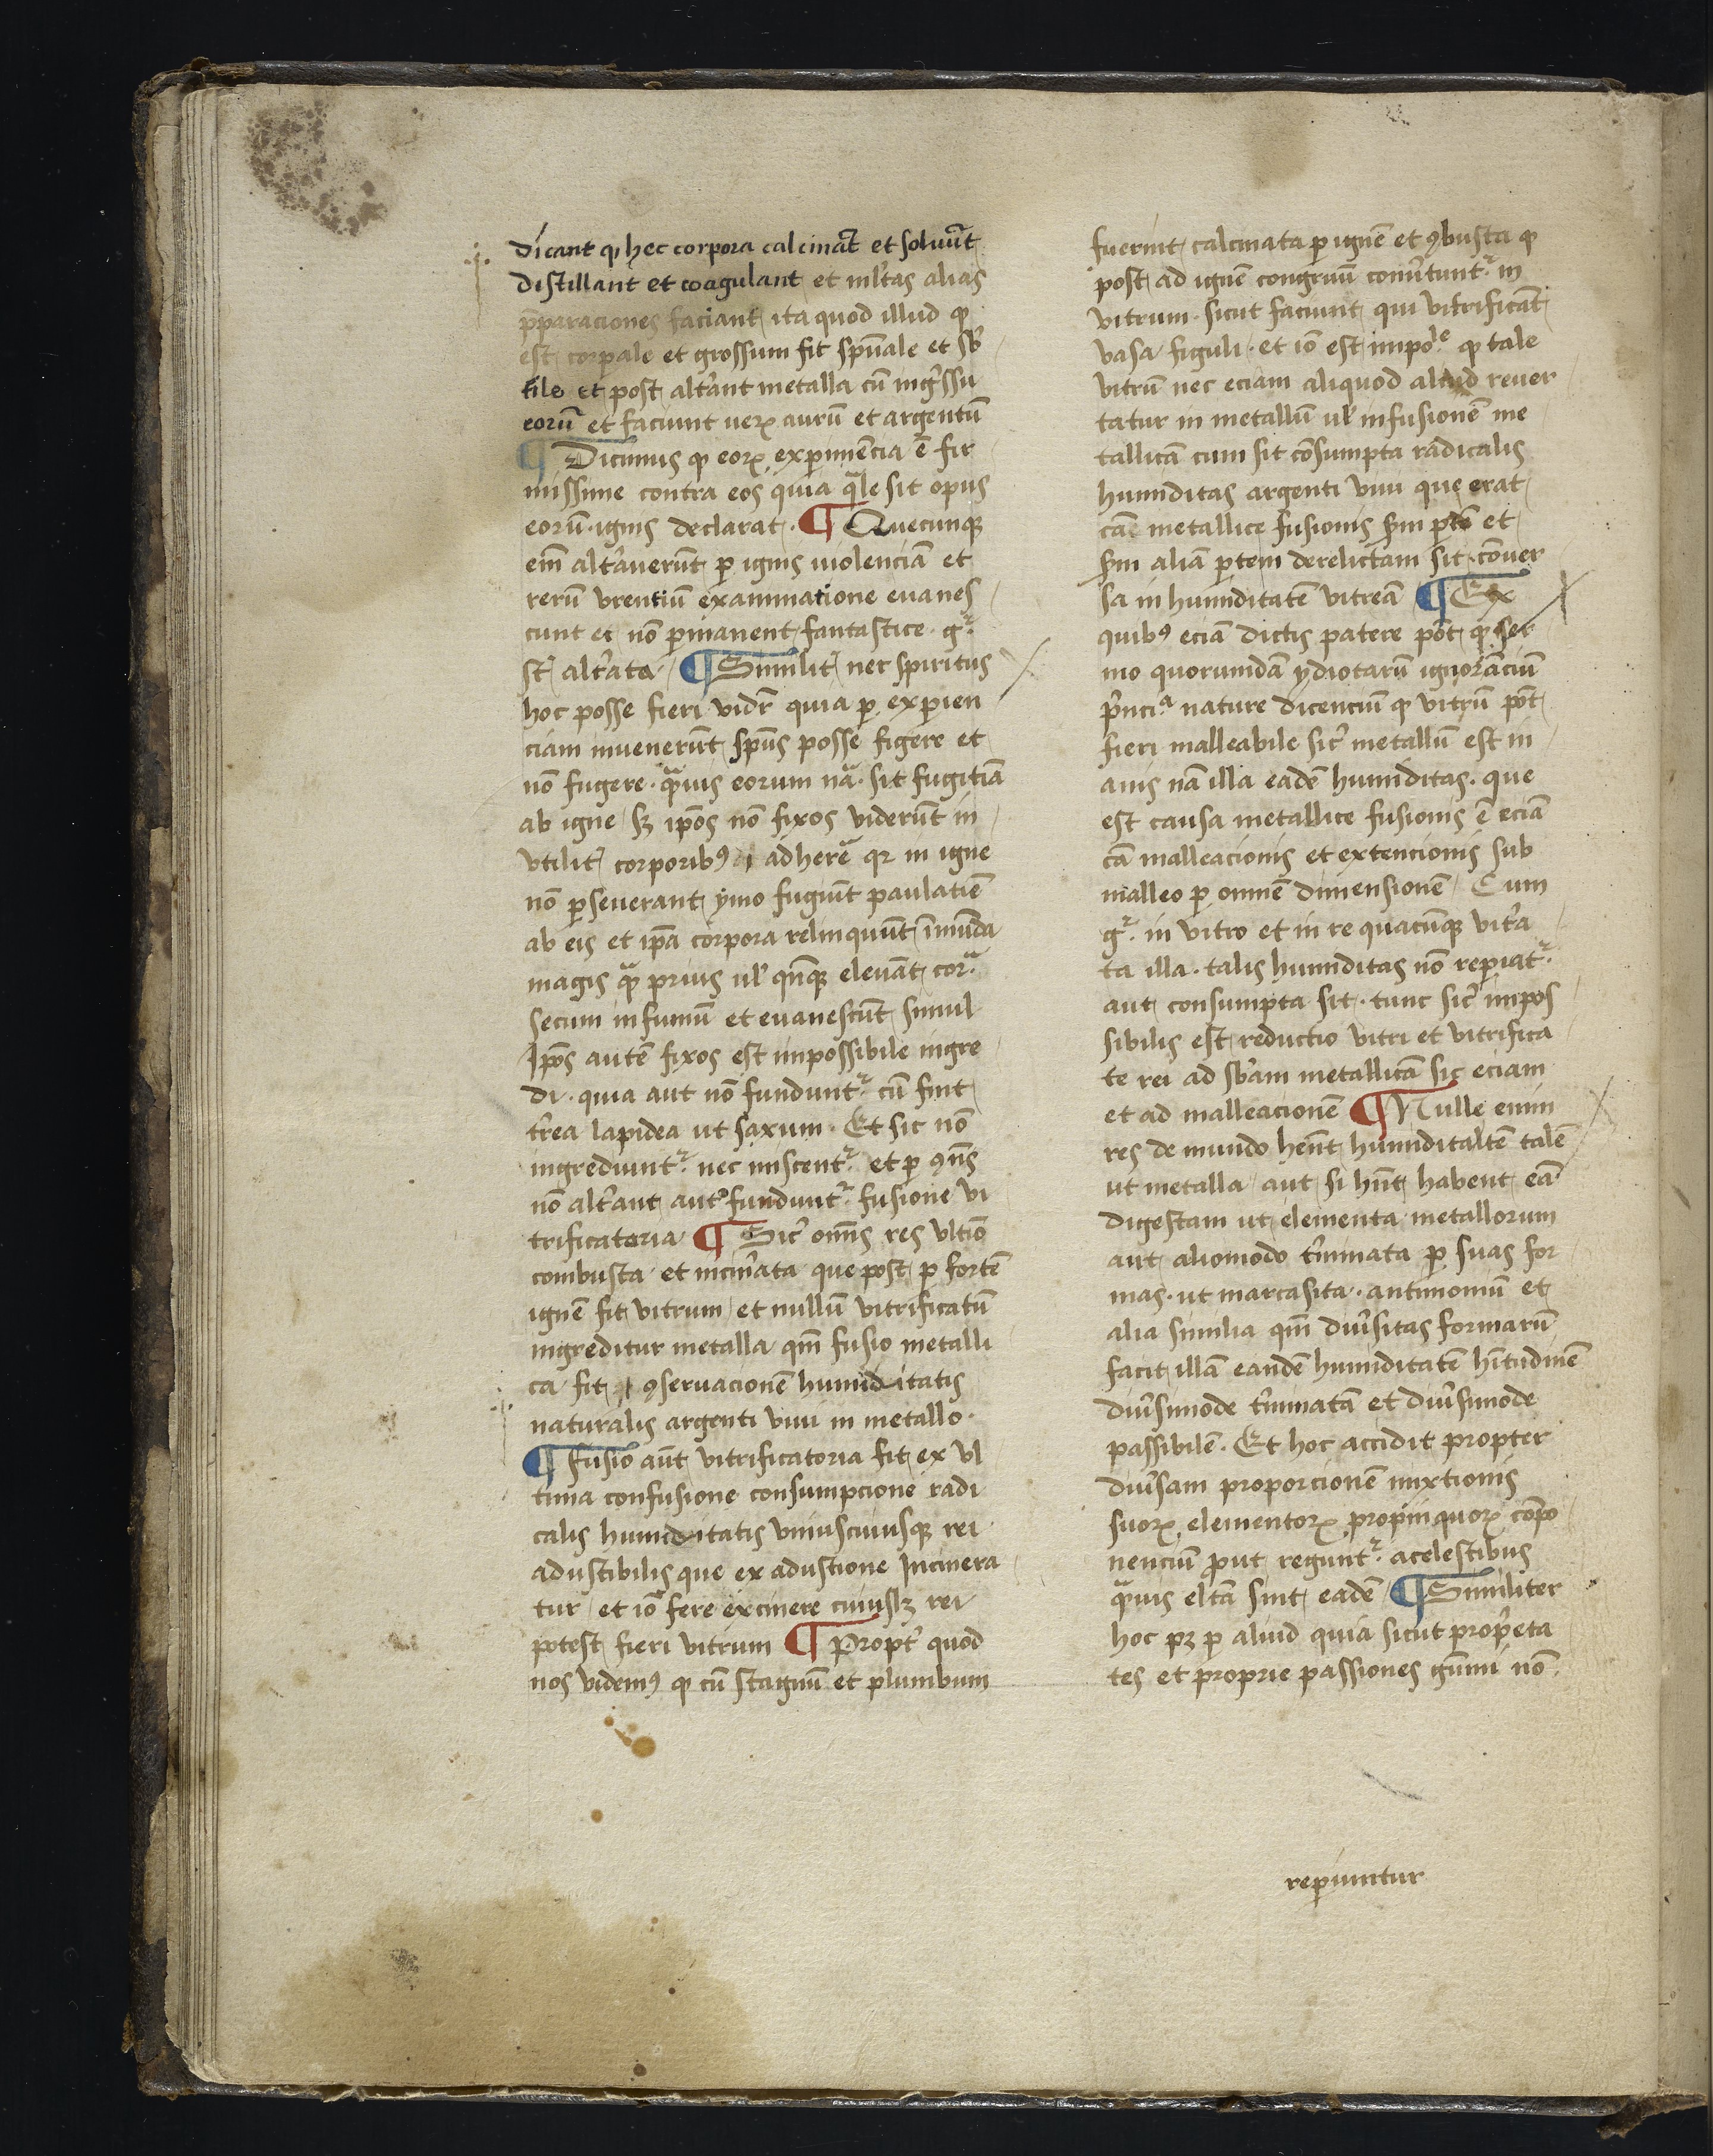 dicant ꝙ hec corpora calcināt et soluūt
distillant et coagulant et ml̓tas alias
p̄paraciones faciant ita quod illud ꝙ
est corpale et grossum fit spūale et sb̓
tile et post alt̓ant metalla cū ingr̓ssu
eorū et faciunt ueꝝ aurū et argentū
¶ Dicimus ꝙ eoꝝ exꝑimēcia ē fir
missime contra eos quia qᷓle sit opus
eorū ignis declarat · ¶ Quecunqꝫ
em̄ alt̓auerūt ꝑ ignis uiolenciā et
rerū vrentiū examinatione euanes
cunt et nō ꝑmanent fantastice gͬ
st̄ alt̓ata ¶ Similit̓ nec spiritus
hoc posse fieri vidr̄ quia ꝑ exꝑien
ciam inuenerūt spūs posse figere et
nō fugere · qᷓuis eorum nᷓa · sit fugitiā
ab igne sꝫ ip̄os nō fixos viderūt in
vtilit̓ corporibꝰ adherē qꝛ in igne
nō ꝑseuerant ymo fugiūt paulatiē
ab eis et ip̄a corpora relinquūt īmūda
magis qᷓ prius ul̓ qn̄qꝫ eleuāt corᷓ
secum in fumū et euanescūt simul
Ip̄os autē fixos est impossibile ingre
di · quia aut nō funduntᷣ cū sint
t̓rea lapidea ut saxum · Et sic nō
ingrediuntᷣ nec miscentᷣ et ꝑ ꝯn̄s
nō alt̓ant aut funduntᷣ fusione vi
trificatoria ¶ Sic̓ omīs res vltīo
combusta et incin̓ata que post ꝑ fortē
ignē fit vitrum et nullū vitrificatū
ingreditur metalla qm̄ fusio metalli
ca fit ꝯseruacionē humiditatis
naturalis argenti viui in metallo ·
¶ fusio aūt vitrificatoria fit ex vl
tima confusione consumpcione radi
calis humiditatis vniuscuiusqꝫ rei
adustibilis que ex adustione Incinera
tur et iō fere ex cinere cuiuslꝫ rei
potest fieri vitrum ¶ Propt̓ quod
nos videmꝰ ꝙ cū stagnū et plumbum
fuerint calcinata ꝑ ignē et ꝯbusta ꝙ
post ad ignē congruū conũtuntᷣ in
vitrum · sicut faciunt qui vitrificāt
vasa figuli · et iō est impoˡᵉ ꝙ tale
vitrū nec eciam aliquod aliud reuer
tatur in metallū ul̓ in fusionē me
tallicā cum sit cōsumpta radicalis
humiditas argenti viui que erat
cā metallice fusionis sm̄ ꝑtē et
sm̄ aliā ꝑtem derelictam sit cōuer
sa in humiditatē vitreā ¶ Ex
quibꝰ eciā dictis patere pōt ꝙ ser
mo quorumdā ydiotarū ignorāciū
p̓nciᵃ nature dicenciū ꝙ vitrū pōt
fieri malleabile sic̓ metallū est in
anis nā illa eadē humiditas · que
est causa metallice fusionis ē eciā
cā malleacionis et extencionis sub
malleo ꝑ omnē dimensionē Cum
gͬ in vitro et in re quacūqꝫ vit̓a
ta illa · talis humiditas nō reꝑiatᷣ
aut consumpta sit · tunc sic̓ impos
sibilis est reductio vitri et vitrifica
te rei ad sb̓am metallicā sic eciam
et ad malleacionē ¶ Nulle enim
res de mundo hēnt humiditatē talē
ut metalla aut si hn̄t habent eā
digestam ut elementa metallorum
aut aliomodo t̓minata ꝑ suas for
mas · ut marcasita · antimoniū et
alia similia qm̄ diũsitas formarū
facit illā eandē humiditatē hītudinē
diũsimode t̓minatā et diũsimode
passibilē · Et hoc accidit propter
diũsam proporcionē mixtionis
suoꝝ elementoꝝ propinquoꝝ cōpo
nenciū ꝓut reguntᷣ a celestibus
qᷓuis eltā sint eadē ¶ Similiter
hoc pꝫ ꝑ aliud quia sicut propr̓eta
tes et proprie passiones gūmi nō
reꝑiuntur